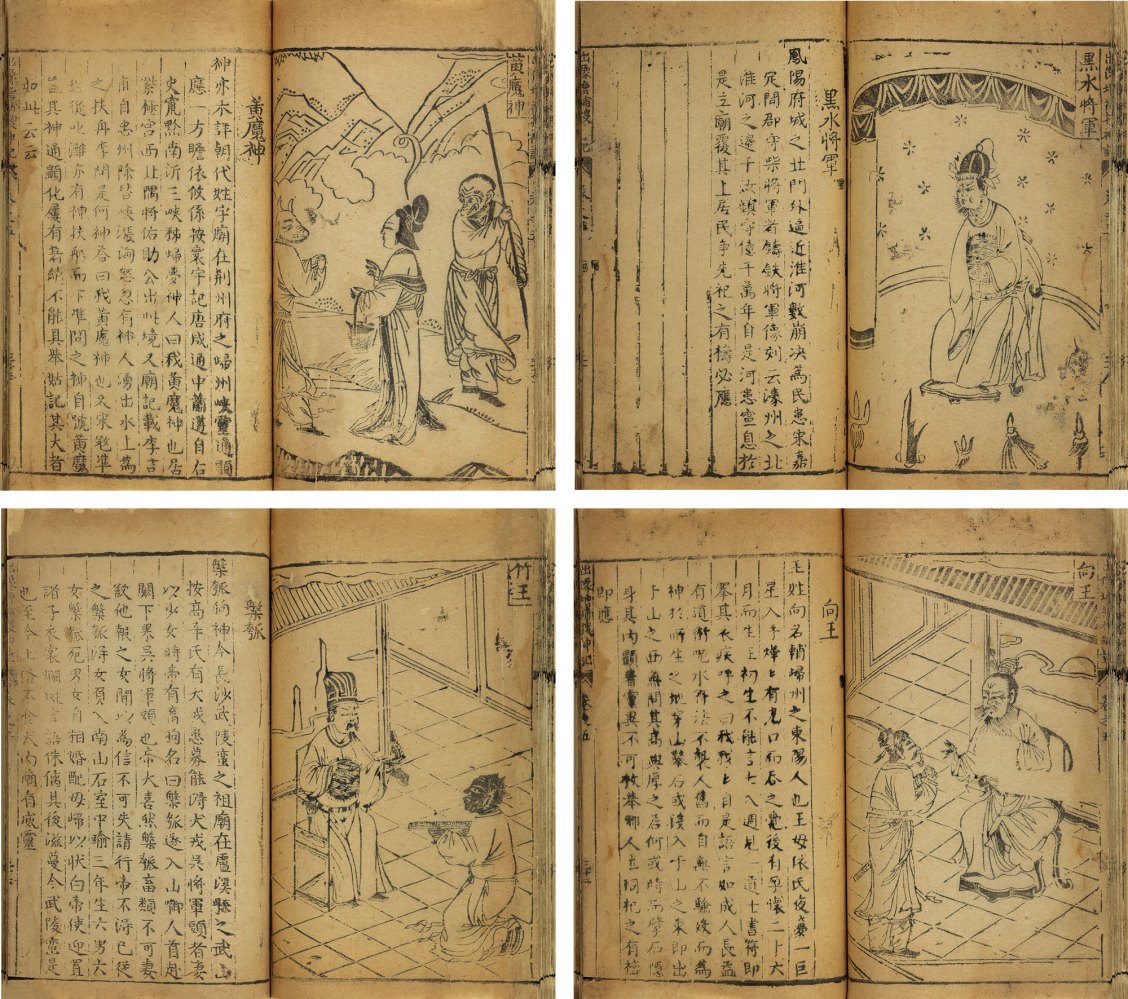 黃魔神
黃魔神
神亦不詳朝代姓字廟在荊州府之歸州峽靈通顯
應一方瞻依攸係按寰宇記唐咸通中蕭遘自右
史竄黔南沂三峽秭歸夢神人曰我黃魔神也居
紫極宮西北隅將佑助公出此境又廟記載李吉
甫自忠州除替峽漲洶怒忽有神人湧出水上為
之扶舟李問是何神答曰我黃魔神也又宋寇準
經從叱灘亦有神扶船而下准問之神自號黃魔
蓋其神通顯化屢有奇蹟不能具舉姑記其大者
如此云云
黑水將軍
黑水將軍
鳳陽府城之北門外逼近淮河數崩决為民患宋嘉
定間郡守柴將軍者鑄鉄將軍像刻云濠州之北
淮河之邊千汝頭守億千萬年自是河患寔息於
是立廟覆其上居民爭先祀之有禱必應
竹王
槃瓠
槃瓠狗神今長沙武陵蠻之祖廟在盧溪縣之武山
按高辛氏有犬戎患募能得犬戎吳將軍頭者妻
以少女時帝有畜狗名曰槃瓠遂入山啣人首赴
闕下果吳將軍頭也帝大喜然槃瓠畜類不可妻
欲他報之女聞以為信不可失請行帝不得已從
之槃瓠得女負入南山石室中踰三年生六男六
女槃瓠死男女自相婚配母歸以狀白帝使迎置
諸子衣裳斕斑言語侏㒧其後滋蔓今武陵蠻是
也至今土俗不食犬肉廟有感靈
向王
向王
王姓向名輔歸州之東陽人也王母依氏夜夢一巨
星入手上有老口而吞之覺後有孕懷二十六
月而生王初生不能言七八週見一道士書符即
搴其衣疾呼之曰我我上自是語言如成人長益
有道術呪水符法不襲人舊而自無不驗後而為
神於所生之地穿山鑿石或浸入乎山之東即出
于山之西無間其高與厚之若何或時而擘石隱
身其內顯靈異不可枚舉鄉人立祠祀之有禱
即應